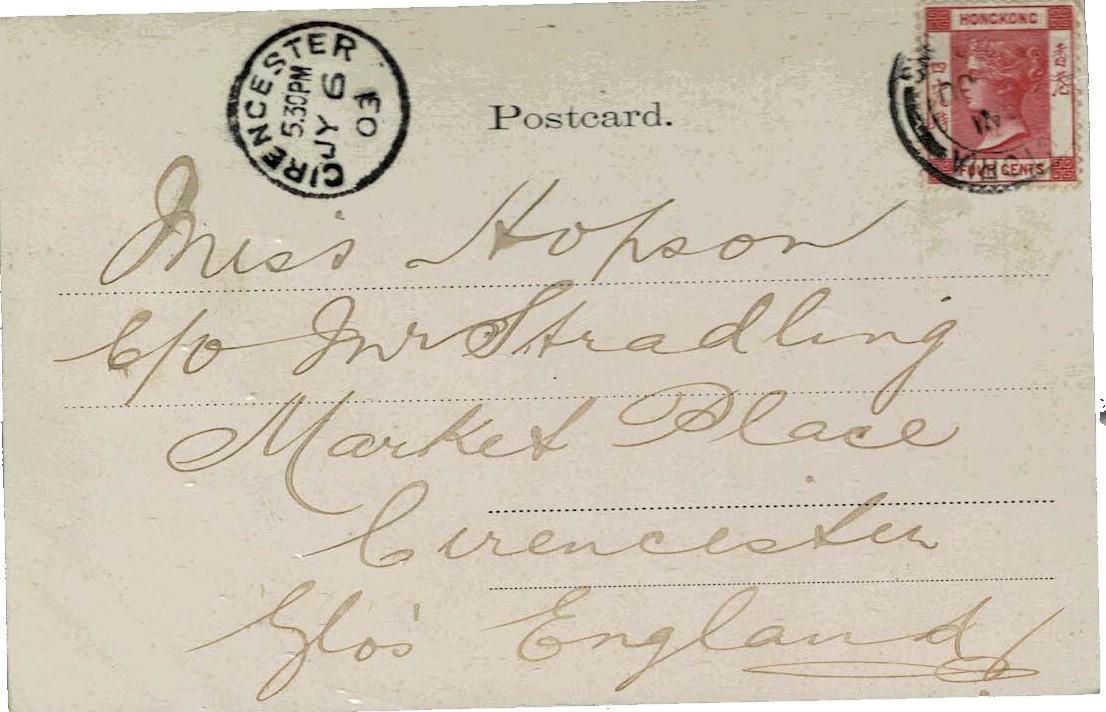 CIRENCESTER
5.30PM
JY 6
03
Postcard.
HONGKONG
香港
FOUR CENTS
Miss Hopson
C/o Mr Stradling
Market Place
Cirencester
Glos England